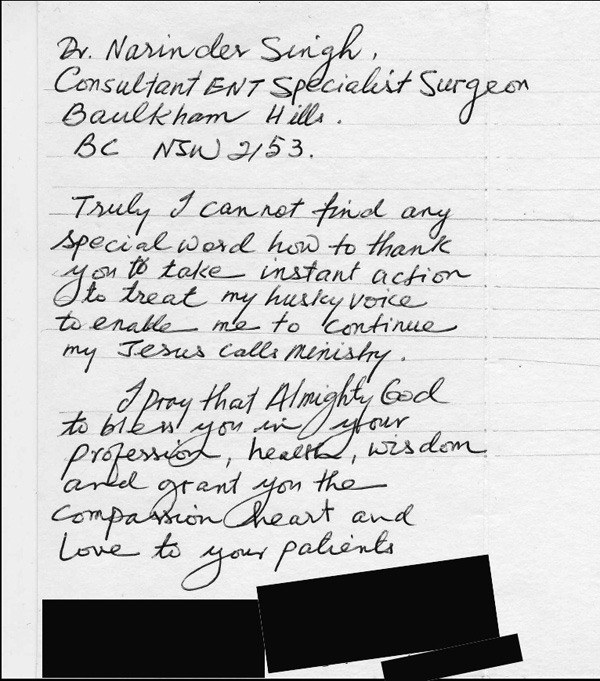 Dr. Narinder Singh,
Consultant ENT Specialist Surgeon
Baulkham Hills.
BC NSW 2153.
Truly I cannot find any
special word how to thank
you to take instant action
to treat my husky voice
to enable me to continue
my Jesus calls ministry.
I pray that Almighty God
to bless you in your
profession, health, wisdom
and grant you the
compassion heart and
love to your patients